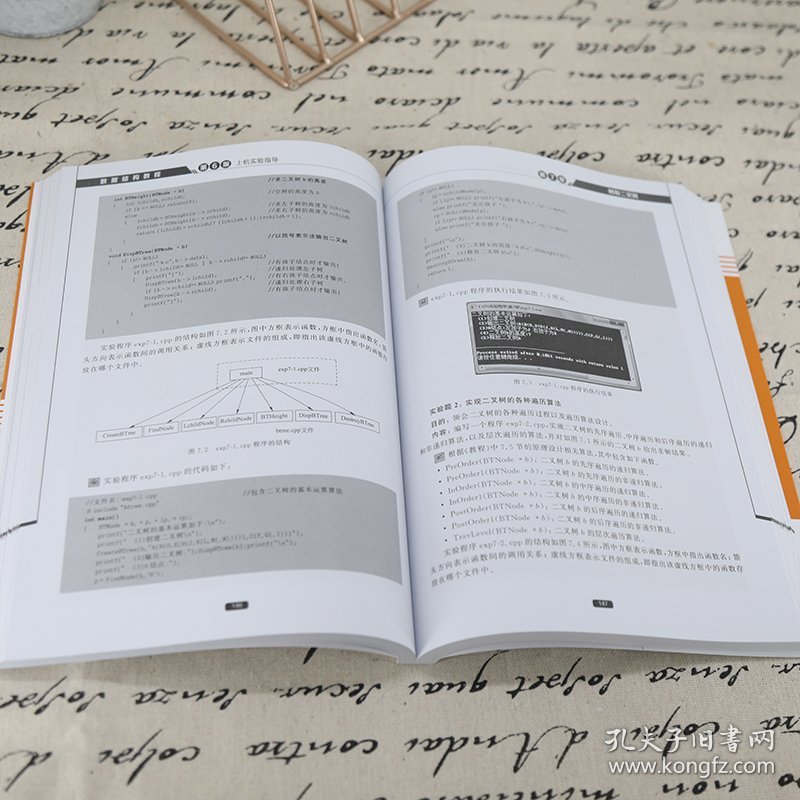 数据结构教程 第6版 上机实验指导
int BTHeight(BTNode * b) //求二叉树b的高度
int lchildh,rchildh;
if (b==NULL) return(0); //空树的高度为0
else
lchildh=BTHeight(b->lchild); //求左子树的高度为lchildh
rchildh=BTHeight(b->rchild); //求右子树的高度为rchildh
return (lchildh>rchildh)? (lchildh+1):(rchildh+1);
void DispBTree(BTNode * b) //以括号表示法输出二叉树
{ if (b!=NULL)
{ printf("%c",b->data);
if (b->lchild!=NULL || b->rchild!=NULL)
{ printf("("); //有孩子结点时才输出(
DispBTree(b->lchild); //递归处理左子树
if (b->rchild!=NULL) printf(","); //有右孩子结点时才输出,
DispBTree(b->rchild); //递归处理右子树
printf(")"); //有孩子结点时才输出)
实验程序exp7-1.cpp的结构如图7.2所示,图中方框表示函数,方框中指出函数名;箭
头方向表示函数间的调用关系;虚线方框表示文件的组成,即指出该虚线方框中的函数存
放在哪个文件中。
main exp7-1.cpp文件
CreateBTree FindNode LchildNode RchildNode BTHeight DispBTree DestroyBTree
btree.cpp文件
图7.2 exp7-1.cpp程序的结构
实验程序exp7-1.cpp的代码如下:
//文件名:exp7-1.cpp
#include "btree.cpp" //包含二叉树的基本运算算法
int main()
{ BTNode * b, * p, * lp, * rp;
printf("二叉树的基本运算如下:\n");
printf(" (1)创建二叉树\n");
CreateBTree(b,"A(B(D,E(H(J,K(L,M(,N))))),C(F,G(,I)))");
printf(" (2)输出二叉树:");DispBTree(b);printf("\n");
printf(" (3)H结点:");
p=FindNode(b,'H');
146
第7章 树和二叉树
if (p!=NULL)
{ lp=LchildNode(p);
if (lp!=NULL) printf("左孩子为%c,",lp->data);
else printf("无左孩子");
rp=RchildNode(p);
if (rp!=NULL) printf("右孩子为%c",rp->data);
else printf("无右孩子");
}
printf("\n");
printf(" (4)二叉树b的高度:%d\n",BTHeight(b));
printf(" (5)释放二叉树b\n");
DestroyBTree(b);
return 1;
}
exp7-1.cpp程序的执行结果如图7.3所示。
二叉树的基本运算如下:
(1)创建二叉树
(2)输出二叉树:A(B(D,E(H(J,K(L,M(,N))))),C(F,G(,I)))
(3)H结点:左孩子为J 右孩子为K
(4)二叉树b的高度:7
(5)释放二叉树b
请按任意键继续. . .
图7.3 exp7-1.cpp程序的执行结果
实验题2:实现二叉树的各种遍历算法
目的:领会二叉树的各种遍历过程以及遍历算法设计。
内容:编写一个程序exp7-2.cpp,实现二叉树的先序遍历、中序遍历和后序遍历的递归
和非递归算法,以及层次遍历的算法,并对如图7.1所示的二叉树b给出求解结果。
根据《教程》中7.5节的原理设计相关算法,其中包含如下函数。
• PreOrder(BTNode * b):二叉树b的先序遍历的递归算法。
• PreOrder1(BTNode * b):二叉树b的先序遍历的非递归算法。
• InOrder(BTNode * b):二叉树b的中序遍历的递归算法。
• InOrder1(BTNode * b):二叉树b的中序遍历的非递归算法。
• PostOrder(BTNode * b):二叉树b的后序遍历的递归算法。
• PostOrder1(BTNode * b):二叉树b的后序遍历的非递归算法。
• TravLevel(BTNode * b):二叉树b的层次遍历算法。
实验程序exp7-2.cpp的结构如图7.4所示,图中方框表示函数,方框中指出函数名;箭
头方向表示函数间的调用关系;虚线方框表示文件的组成,即指出该虚线方框中的函数存
放在哪个文件中。
147
孔夫子旧书网
www.kongfz.com